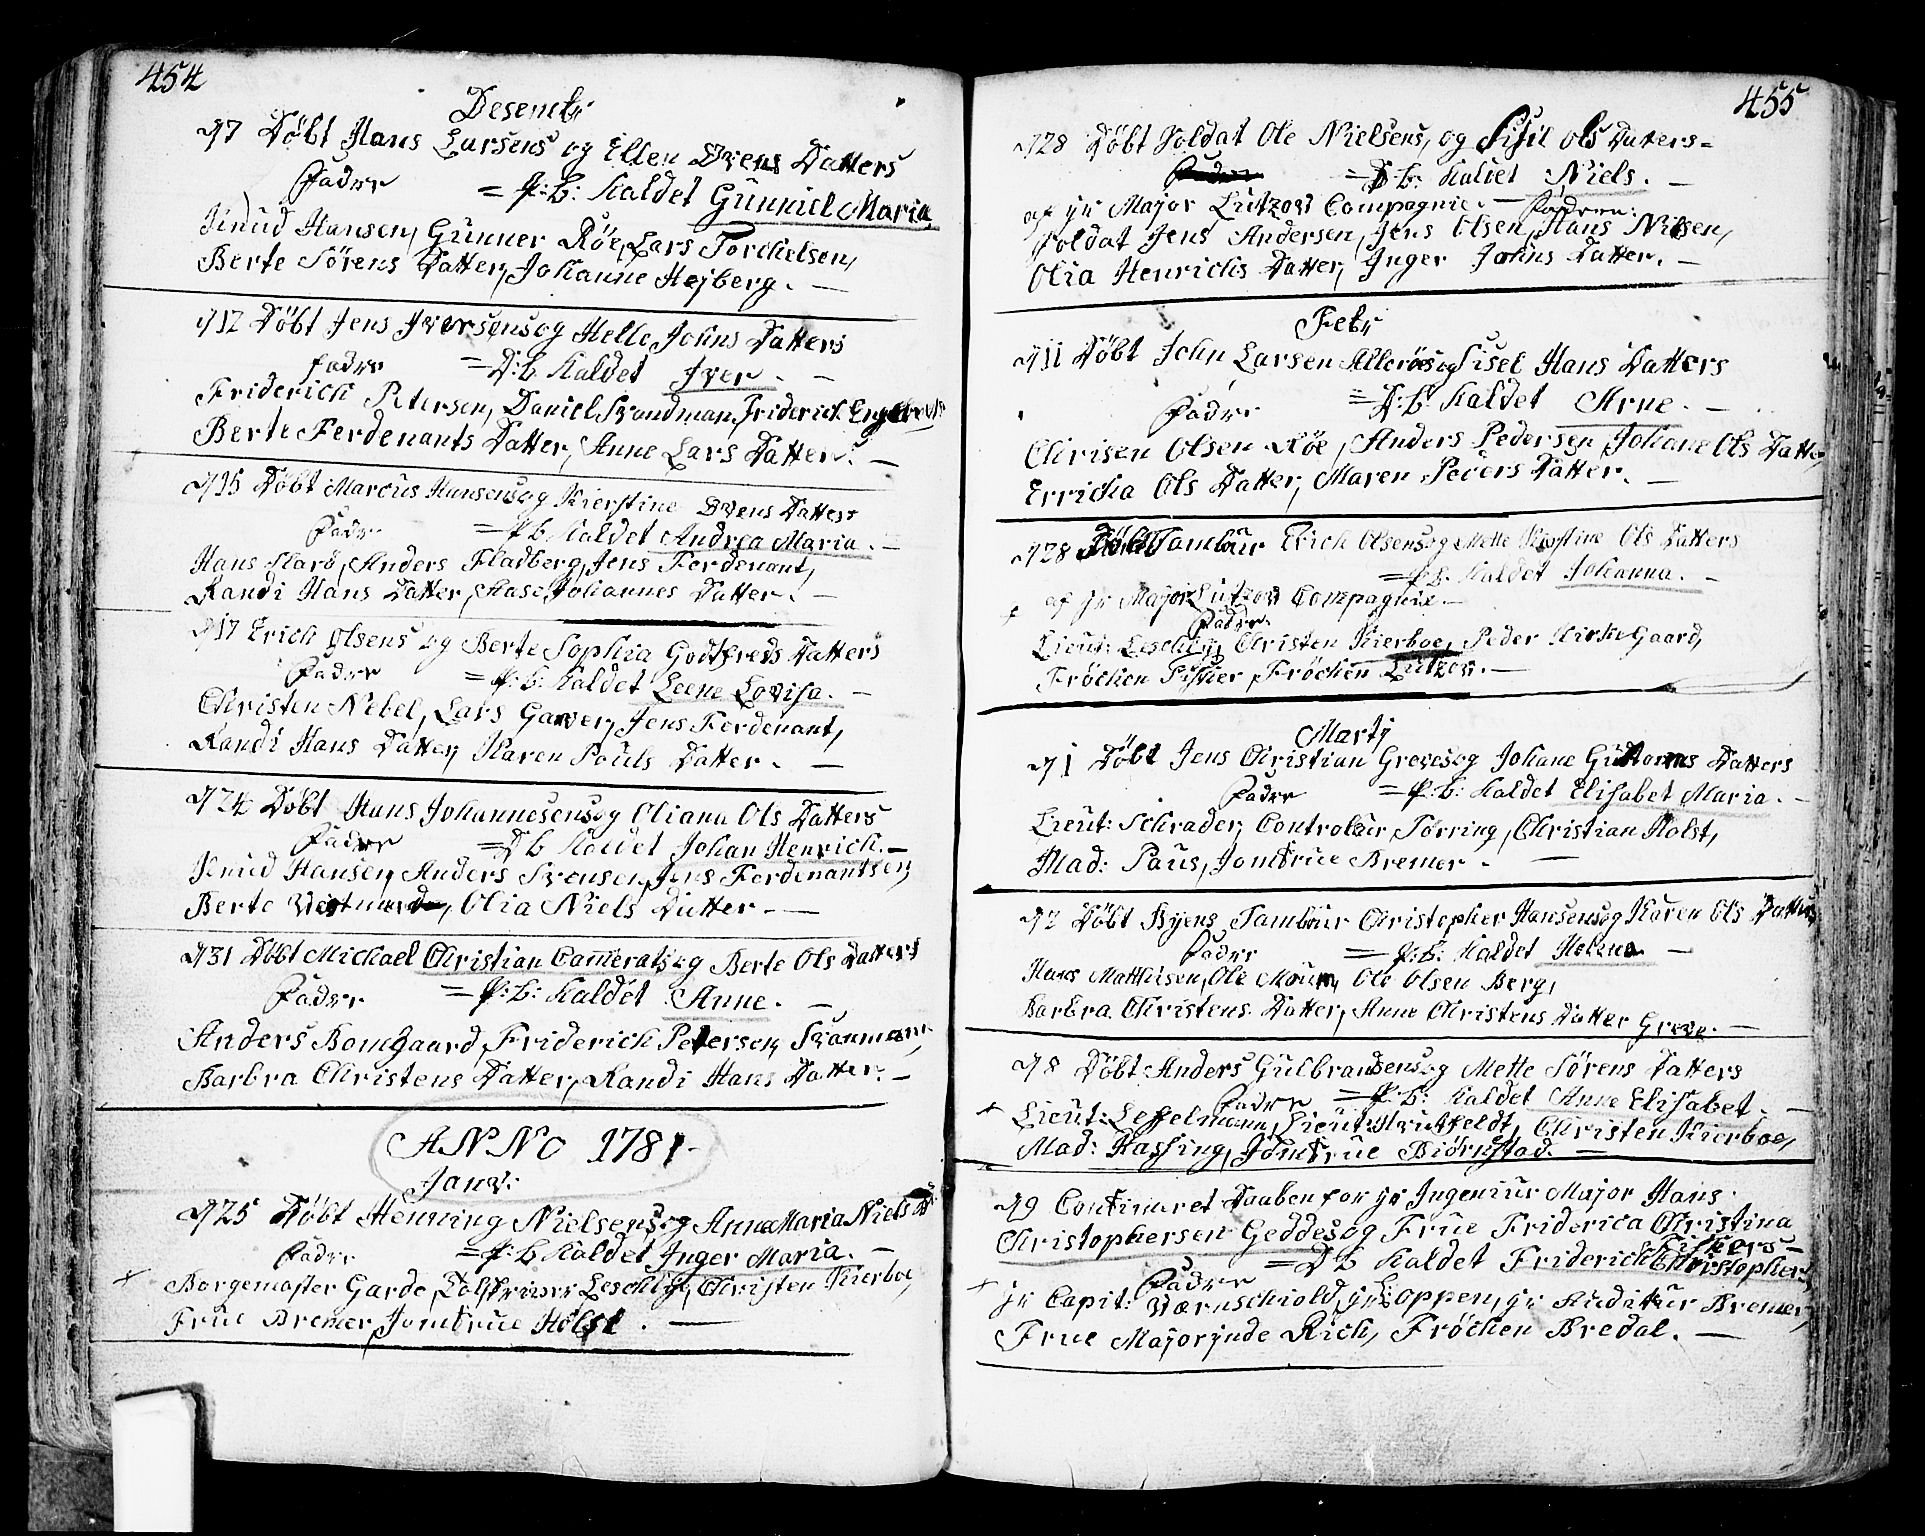 454
Desembr
d 7 Döbt Hans Larsens og Ellen Svens Datters
Fadrr = P: b: kaldet Gunnild Maria
Knud Hansen, Gunner Röe, Lars Torchelsen,
Berte Sörens Datter, Johanne Hejberg. —
d 12 Döbt Jens Iversens og Helle Johns Datters
fadrr = D: b. kaldet Iver. —
Friderich Petersen, Daniel Svandman, Friderich
Berte Ferdenants Datter, Anne Lars Datter. —
d 15 Döbt Marcus Hansens og Kierstine Svens Datters
Fadrr = P b kaldet Andrea Maria. —
Hans Harö, Anders Fladberg, Jens Ferdenant,
Randi Hans Datter, Aase Johannes Datter. —
d 17 Erich Olsens og Berte Sophia Godtfreds Datters
Fadrr = P: b: kaldet Leene Lovisa. —
Christen Nebel, Lars Garver, Jens Ferdenant,
Randi Hans Datter, Karen Pouls Datter. —
d 24 Döbt Hans Johannesens og Oliana Ols Datters
Fadrr = D b kaldet Johan Henrich. —
Knud Hansen, Anders Svensen, Jens Ferdenantsen,
Berte Olia Niels Datter. —
d 31 Döbt Michael Christian Camerats og Berte Ols Datters
Fadrr = P: b: kaldet Anne. —
Anders Bomgaard, Friderich Petersen, Svanmann,
Barbra Christens Datter, Randi Hans Datter. —
ANNO 1781.
Janv:
d 25 Döbt Henning Nielsens og Anna Maria Niels
Fadrr = P: b. kaldet Inger Maria. —
Borgemaster Garde, Leschly, Christen Kierboe,
Frue Bremer, Jomfrue Holst. —
455
d 28 Döbt Soldat Ole Nielsens, og Sisil Ols Datters =
= D: b: kaldet Niels. —
af hr Major Lützow Compagnie. — Fadrrn:
Soldat Jens Andersen, Jens Olsen, Hans Nilsen,
Olia Henrichs Datter, Inger Johns Datter. —
Febr
d 11 Döbt John Larsen Alleröes og Sisel Hans Datters
Fadrr = D: b. kaldet Arne. —
Chrisen Olsen Röe, Anders Pedersen, Johane Ols Datter,
Erricha Ols Datter, Maren Peders Datter. —
d 28 Döbt Tambur Erich Olsens og Mette Kirstine Ols Datters
= P: b. kaldet Johanna. —
af hr Major Lützow Compagnie. —
Fadrr
Lieut: Leschly, Christen Kierboe, Peder Kirkegaard,
Fröchen Fisker, Fröchen Lützow. —
Martj
d 1 Döbt Jens Christian Greves og Johane Datters
Fadrr = P: b: kaldet Elisabet Maria. —
Lieut: Schrader, Controlör Törring, Christian Holst,
Mad: Paus, Jomfrue Bremer. —
d 2 Döbt Byens Tambur Christopher Hansens og Karen Ols Datters
Fadrr = P: b: kaldet Helena —
Hans Matthisen, Ole Moum, Ole Olsen Berg,
Barbra Christens Datter, Anne Christens Datter Greve. —
d 8 Döbt Anders Gulbrandsens og Mette Sörens Datters
Fadrr = P: b: kaldet Anne Elisabet. —
Lieut: Leffelmann, Lieut: Hvitfeldt, Christen Kierboe,
Mad: Hassing, Jomfrue Biörnstad. —
d 9 Confimeret Daaben for hr Ingeniur Major Hans
Christophersen Geddes og Frue Friderica Christina
Fiskers =
= D b kaldet Friderich Christopher,
Fadrr
hr Capit: Wærnschiold, hr: L: Oppen, hr Auditur Bremer,
Frue Majorjnde Rich, Fröchen Bredal. —